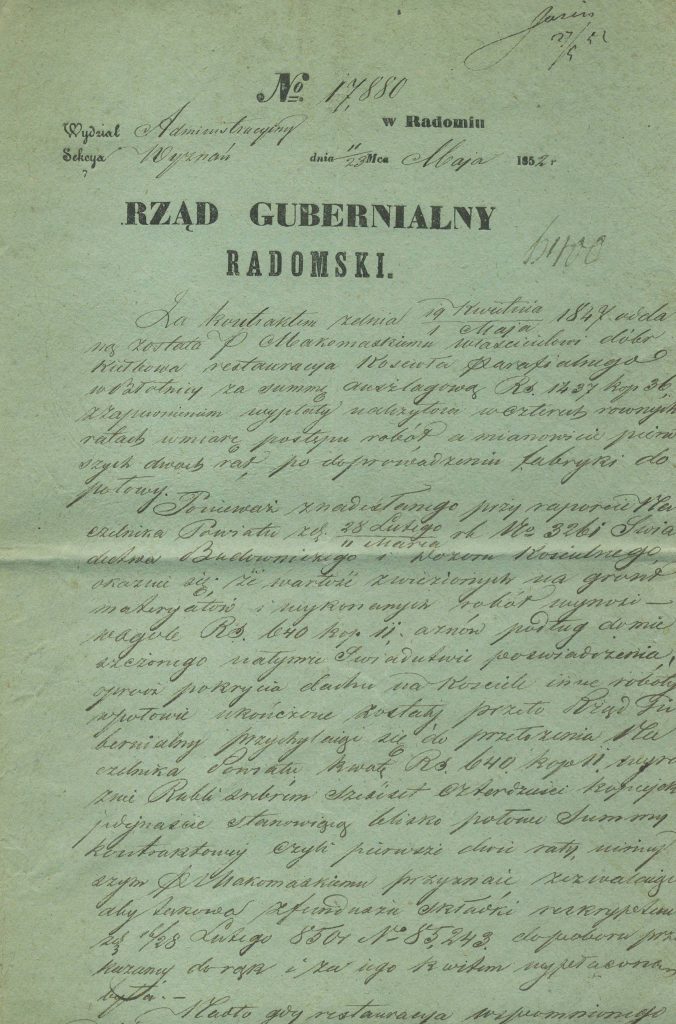 No. 17,880
w Radomiu
Wydział Administracyjny
Sekcya Wyznań dnia 11/23 Mca Maja 1852 r
RZĄD GUBERNIALNY
RADOMSKI.
6400
Za kontraktem zdnia 19 Kwietnia / 1 Maja 1847. odda
ną została P Makomaskiemu właścicielowi dóbr
restauracya Kościoła Parafialnego
w Błotnicy za summę anszlagową Rs. 1437 kop 36,
zzapewnieniem wypłaty należytości w czterech równych
ratach w miarę postępu robót a mianowicie pierw
szych dwóch rat, po doprowadzeniu fabryki do
połowy.
Ponieważ znadesłanego przy raporcie Na
czelnika Powiatu zd. 28 Lutego / 11 Marca rb No 3261 Świa
dectwa Budowniczego i Dozoru Kościelnego,
okazuie się, że wartość zwiezionych na grunt
materyałów i wykonanych robót wynosi –
wogóle Rs. 640 kop 11, a znów podług domie
szczonego natymże Świadectwie poświadczenia,
oprócz pokrycia dachu na Kościele inne roboty
wpołowie ukończone zostały przeto Rząd Gu
bernialny przychylaiąc się do przełożenia Na
czelnika Powiatu kwotę Rs. 640. kop 11. wyra
źnie Rubli srebrem Sześćset czterdzieści kopiejek
jedynaście stanowiącą blisko połowę Summy
kontraktowej czyli pierwsze dwie raty, niniej
szym P Makomaskiemu przyznaie zezwalaiąc
aby takowa zfunduszu składki reskryptem
zd 16/28 Lutego 850r No 85,243 do poboru prze
kazanej do rąk i za iego kwitem wypłaconą
była. –
Nadto gdy restauracya wspomnionego